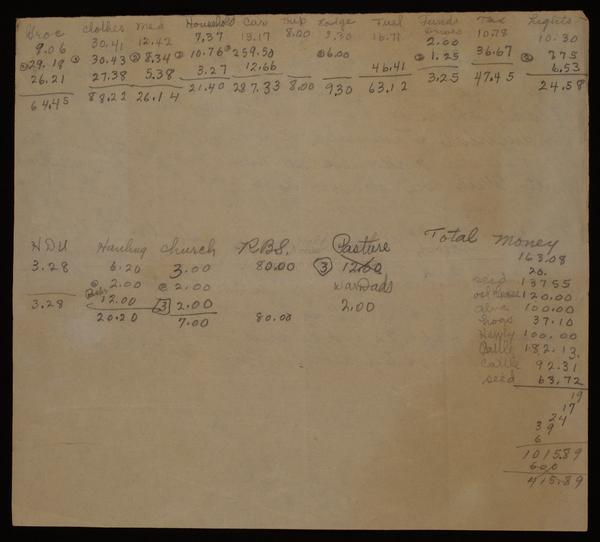 Groc clothes Med Household Car Trip Lodge Fuel Funds Tax Lights
9.06 30.41 12.42 7.37 13.17 8.00 3.30 16.71 2.00 10.78 10.30
29.18 30.43 8.34 10.76 259.50 6.00 1.25 36.67 7.75
26.21 27.38 5.38 3.27 12.66 46.41 6.53
64.45 88.22 26.14 21.40 287.33 8.00 9.30 63.12 3.25 47.45 24.58
HDU Hauling church R.B.S. Pasture Total Money
3.28 6.20 3.00 80.00 3 12.00 163.08
2.00 2.00 War Dads 20.
12.00 3 2.00 2.00 seed 137.55
3.28 20.20 7.00 80.00 120.00
100.00
hogs 37.10
Henry 100.00
Cattle 182.13
cattle 92.31
seed 63.72
19
17
24
39
6
1015.89
600
415.89